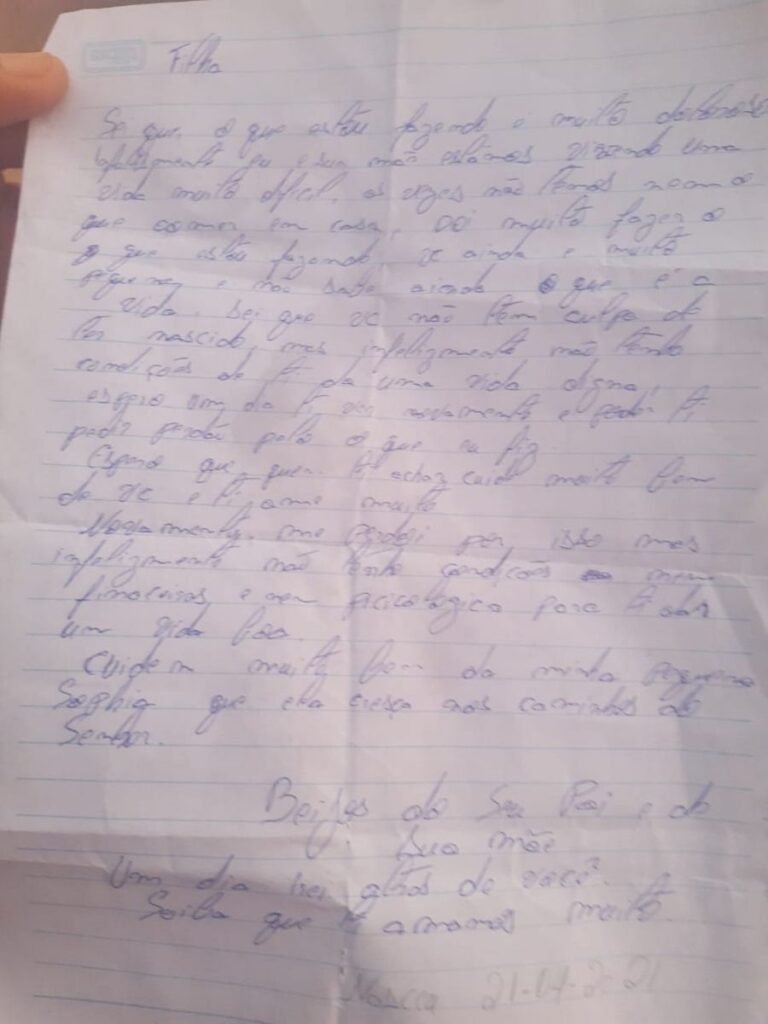 Filha
Se que o que estou fazendo e muito doloroso
infelizmente eu e sua mãe estamos vivendo uma
vida muito dificil, as vezes não temos nem o
que comer em casa, Doi muito fazer o
o que estou fazendo, vc ainda e muito
pequena e não sabe ainda o que é a
vida. Sei que vc não tem culpa de
ter nascido, mas infelizmente não tenho
condições de ti da uma vida digna,
espero um dia ti ver novamente e poder ti
pedir perdão pelo o que eu fiz.
Espero que quem ti achar cuide muito bem
de vc e ti ame muito
Novamente, me perdoi por isso mas
infelizmente não tenho condições nem
financeiras e nem picicologica para ti dar
um vida boa.
Cuidem muito bem da minha pequena
Sophia que ela cresça nos caminhos do
Senhor.
Beijos do Seu Pai e da
Sua mãe
Um dia irei atras de você.
Saiba que ti amamos muito
Nasceu 21-04-2021